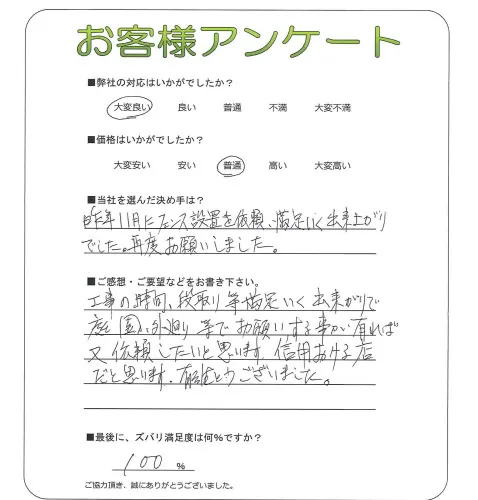 お客様アンケート
■弊社の対応はいかがでしたか？
大変良い 良い 普通 不満 大変不満
■価格はいかがでしたか？
大変安い 安い 普通 高い 大変高い
■当社を選んだ決め手は？
昨年11月にフェンス設置を依頼、満足いく出来上がり
でした。再度お願いしました。
■ご感想・ご要望などをお書き下さい。
工事の時間、段取り等満足いく出来がりで
庭園、水廻り等でお願いする事が有れば
又依頼したいと思います。信用おける店
だと思います。有難とうございました。
■最後に、ズバリ満足度は何%ですか？
100 %
ご協力頂き、誠にありがとうございました。